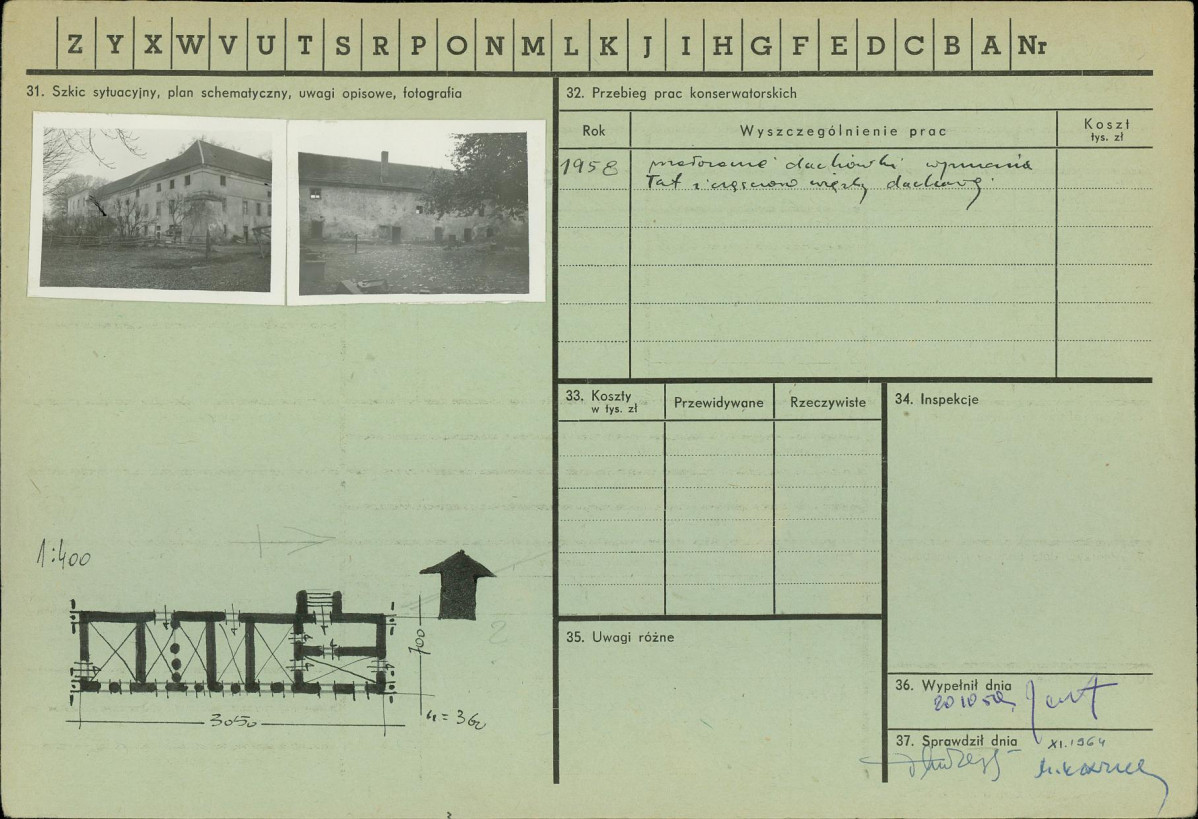 Z Y X W V U T S R P O N M L K J I H G F E D C B A Nr
31. Szkic sytuacyjny, plan schematyczny, uwagi opisowe, fotografia
1:400
700
3050
32. Przebieg prac konserwatorskich
Rok
Wyszczególnienie prac
Koszt
tys. zł
1958
dachówki wymiana
łat i częściowo więźby dachowej
33. Koszty
w tys. zł
Przewidywane
Rzeczywiste
34. Inspekcje
35. Uwagi różne
36. Wypełnił dnia
37. Sprawdził dnia
XI.1964